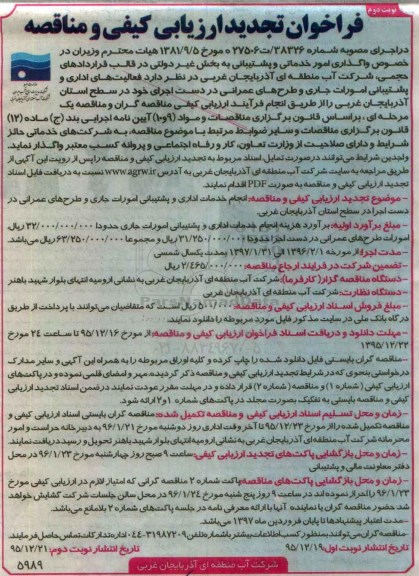 نوبت دوم
فراخوان تجدید ارزیابی کیفی و مناقصه
دراجرای مصوبه شماره ۳۸۳۲۶/ت۲۷۵۰۶ مورخ ۱۳۸۱/۹/۵ هیات محترم وزیران در
خصوص واگذاری امور خدماتی و پشتیبانی به بخش غیر دولتی در قالب قراردادهای
حجمی، شرکت آب منطقه ای آذربایجان غربی در نظر دارد فعالیت‌های اداری و
پشتیبانی امورات جاری و طرح‌های عمرانی در دست اجرای خود در سطح استان
آذربایجان غربی را از طریق انجام فرآیند ارزیابی کیفی مناقصه گران و مناقصه یک
مرحله ای، براساس قانون برگزاری مناقصات و مواد (۹و۱۰) آیین نامه اجرایی بند (ج) ماده (۱۲)
قانون برگزاری مناقصات و سایر ضوابط مرتبط با موضوع مناقصه، به شرکت‌های خدماتی حائز
شرایط و دارای صلاحیت از وزارت تعاون، کار و رفاه اجتماعی و پروانه کسب معتبر واگذار نماید.
واجدین شرایط می‌توانند درصورت تمایل اسناد مربوط به تجدید ارزیابی کیفی و مناقصه را پس از رویت این آگهی از
طریق مراجعه به سایت شرکت آب منطقه ای آذربایجان غربی به آدرس www.agrw.ir نسبت به دریافت فایل اسناد
تجدید ارزیابی کیفی و مناقصه به صورت PDF اقدام نمایند.
- موضوع تجدید ارزیابی کیفی و مناقصه: انجام خدمات اداری و پشتیبانی امورات جاری و طرح‌های عمرانی در
دست اجرا در سطح استان آذربایجان غربی.
- مبلغ برآورد اولیه: برآورد هزینه انجام خدمات اداری و پشتیبانی امورات جاری حدودا ۳۲/۰۰۰/۰۰۰/۰۰۰ ریال،
امورات طرح‌های عمرانی در دست اجرا حدودا ۳۱/۲۵۰/۰۰۰/۰۰۰ ریال و مجموعا ۶۳/۲۵۰/۰۰۰/۰۰۰ ریال می‌باشد.
- مدت اجرا: از مورخه ۱۳۹۶/۲/۱ الی ۱۳۹۷/۱/۳۱ بمدت یکسال شمسی
- تضمین شرکت در فرایند ارجاع مناقصه: ۲/۴۶۵/۰۰۰/۰۰۰ ریال
- دستگاه مناقصه گزار(کارفرما): شرکت آب منطقه ای آذربایجان غربی به نشانی ارومیه انتهای بلوار شهید باهنر
- دستگاه نظارت: شرکت آب منطقه ای آذربایجان غربی
- مبلغ فروش اسناد ارزیابی کیفی و مناقصه: ریال است. که متقاضیان می‌توانند با پرداخت از طریق
درگاه بانک ملی در سایت مذکور فایل مورد مربوطه را دانلود نمایند.
- مهلت دانلود و دریافت اسناد فراخوان ارزیابی کیفی و مناقصه: از مورخ ۹۵/۱۲/۱۶ تا ساعت ۲۴ مورخ
۱۳۹۵/۱۲/۲۲
- مناقصه گران بایستی فایل دانلود شده را چاپ کرده و کلیه اوراق مربوطه را به همراه این آگهی و سایر مدارک
درخواستی بنحوی که در شرایط تجدید ارزیابی کیفی و مناقصه ذکر گردیده، مهر و امضای قلمی نموده و در پاکت‌های
ارزیابی کیفی (شماره ۱) و مناقصه (شماره ۲) قرار داده و در مهلت مقرر عودت نمایند درضمن اسناد تجدید ارزیابی
کیفی و مناقصه بایستی به تفکیک بصورت مجلد در پاکت‌های شماره ۱و۲ ارائه شود.
- زمان و محل تسلیم اسناد ارزیابی کیفی و مناقصه تکمیل شده: مناقصه گران بایستی اسناد ارزیابی کیفی و
مناقصه تکمیل شده را از مورخ ۹۵/۱۲/۲۳ تا آخر وقت اداری روز دوشنبه مورخ ۹۶/۱/۲۱ به دبیرخانه حراست و امور
محرمانه شرکت آب منطقه ای آذربایجان غربی به نشانی ارومیه انتهای بلوار شهید باهنر تحویل و رسید دریافت نمایند.
- زمان و محل بازگشایی پاکت‌های تجدید ارزیابی کیفی: ساعت ۹ صبح روز چهارشنبه مورخ ۹۶/۱/۲۳ در محل
دفتر معاونت مالی و پشتیبانی.
- زمان و محل بازگشایی پاکت‌های مناقصه: پاکت شماره ۲ مناقصه گرانی که امتیاز لازم در ارزیابی کیفی مورخ
۹۶/۱/۲۳ را احراز نموده اند در ساعت ۹ روز پنج شنبه مورخ ۹۶/۱/۲۴ در محل سالن جلسات شرکت گشایش خواهد
شد. حضور مناقصه گران یا نماینده آنها با ارائه معرفی نامه در جلسه پاکت‌های شماره ۲ بلامانع می‌باشد.
- مدت اعتبار پیشنهادها تا پایان فروردین ماه ۱۳۹۷ می‌باشد.
- مناقصه گران می‌توانند بمنظور کسب اطلاعات بیشتر با شماره تلفن ۳۱۹۸۷۲۰۹-۰۴۴ اداره تدارکات تماس حاصل فرمایند.
تاریخ انتشار نوبت اول: ۹۵/۱۲/۱۹ تاریخ انتشار نوبت دوم: ۹۵/۱۲/۲۱
شرکت آب منطقه ای آذربایجان غربی ۵۹۸۹